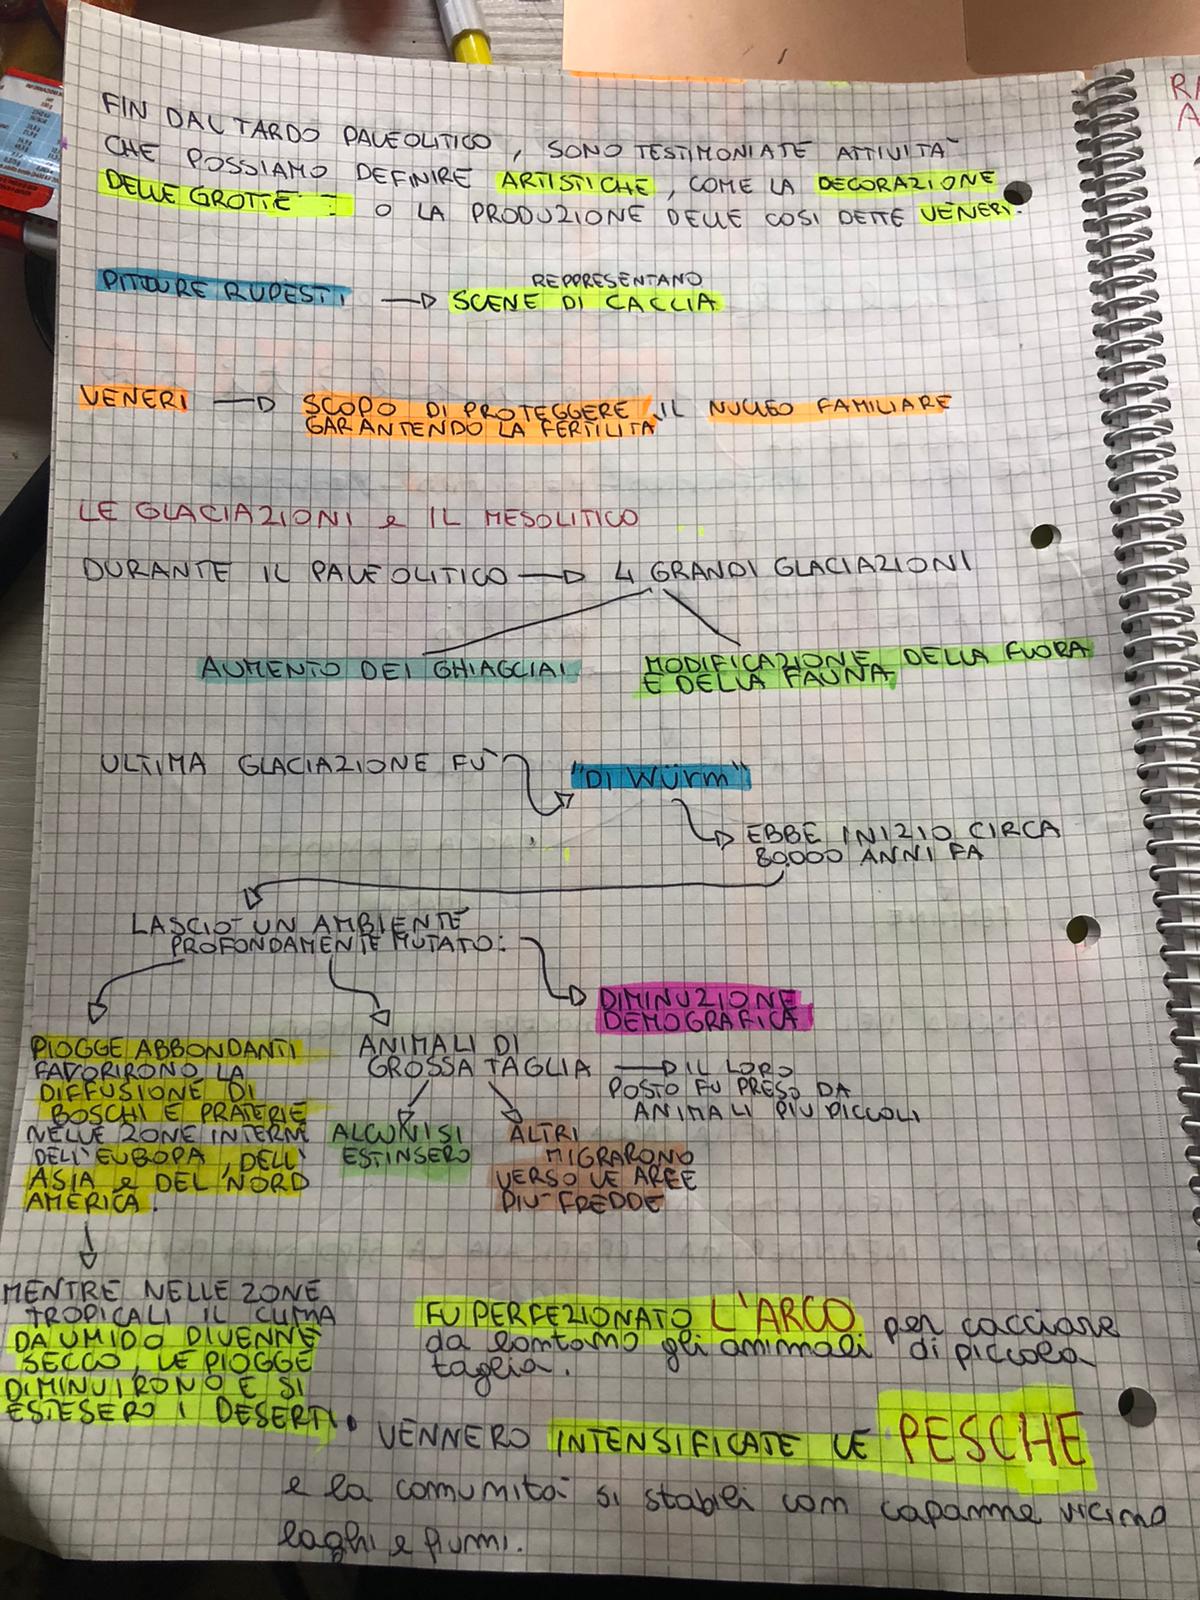 FIN DAL TARDO PALEOLITICO, SONO TESTIMONIATE ATTIVITÀ
CHE POSSIAMO DEFINIRE ARTISTICHE, COME LA DECORAZIONE
DELLE GROTTE O LA PRODUZIONE DELLE COSI DETTE VENERI.
PITTURE RUPESTI
REPPRESENTANO
SCENE DI CACCIA
VENERI
SCOPO DI PROTEGGERE IL NUCLEO FAMILIARE
GARANTENDO LA FERTILITA
LE GLACIAZIONI e IL MESOLITICO
DURANTE IL PALEOLITICO 4 GRANDI GLACIAZIONI
AUMENTO DEI GHIAGCIAI
MODIFICAZIONE DELLA FUORA
E DELLA FAUNA
ULTIMA GLACIAZIONE FÙ
"DI WÜRM"
EBBE INIZIO CIRCA
80.000 ANNI FA
LASCIÒ UN AMBIENTE
PROFONDAMENTE MUTATO:
DIMINUZIONE
DEMOGRAFICA
PIOGGE ABBONDANTI
FAVORIRONO LA
DIFFUSIONE DI
BOSCHI E PRATERIE
NELLE ZONE INTERNE
DELL'EUROPA, DELL'
ASIA e DEL NORD
AMERICA.
ANIMALI DI
GROSSA TAGLIA
IL LORO
POSTO FU PRESO DA
ANIMALI PIU PICCOLI
ALCUNI SI
ESTINSERO
ALTRI
MIGRARONO
VERSO LE AREE
PIÙ FREDDE
MENTRE NELLE ZONE
TROPICALI IL CLIMA
DA UMIDO DIVENNE
SECCO, LE PIOGGE
DIMINUIRONO E SI
ESTESERO I DESERTI.
FU PERFEZIONATO L'ARCO per cacciare
da lontano gli animali di piccola
taglia.
VENNERO INTENSIFICATE LE PESCHE
e la comunità si stabilì con capanne vicino
laghi e fiumi.